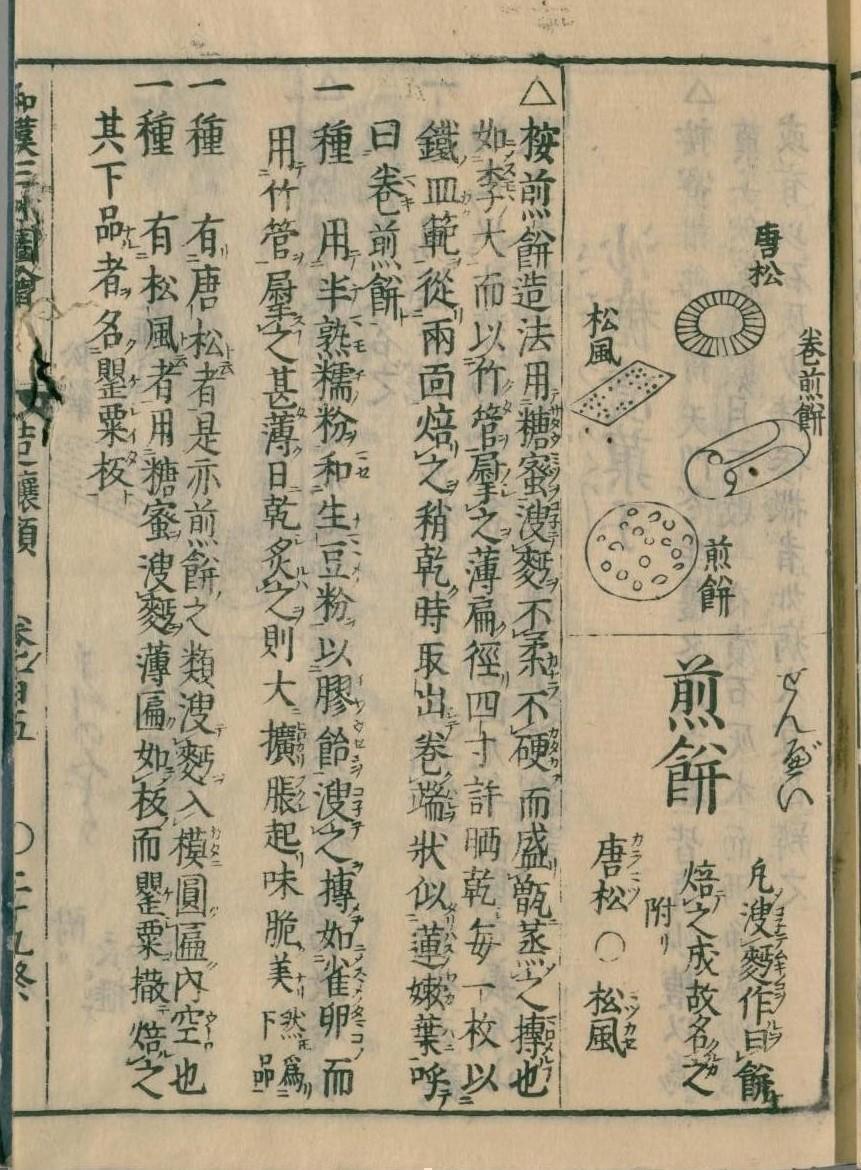 唐松
卷煎餅
松風
煎餅
せんべい
煎餅
凢溲麪作曰餅
焙之成故名之
附リ
唐松 ○ 松風
カラマツ
マツカセ
△按煎餅造法用糖蜜溲麪不柔不硬而盛甑蒸之摶也
如李大而以竹管㞡之薄扁徑四寸許晒乾每一枚以
鐵皿範從兩面焙之稍乾時取出卷端狀似蓮嫩葉呼
曰卷煎餅
一種 用半熟糯粉和生豆粉以膠飴溲之摶如雀卵而
用竹管㞡之甚薄日乾炙之則大擴脹起味脆美然爲下品
一種 有唐松者是亦煎餅之類溲麪入模圓匾内空也
一種 有松風者用糖蜜溲麪薄匾如板而罌粟撒焙之
其下品者名罌粟板
和漢三才圖會
造釀類 卷百五 ○ 二十九終